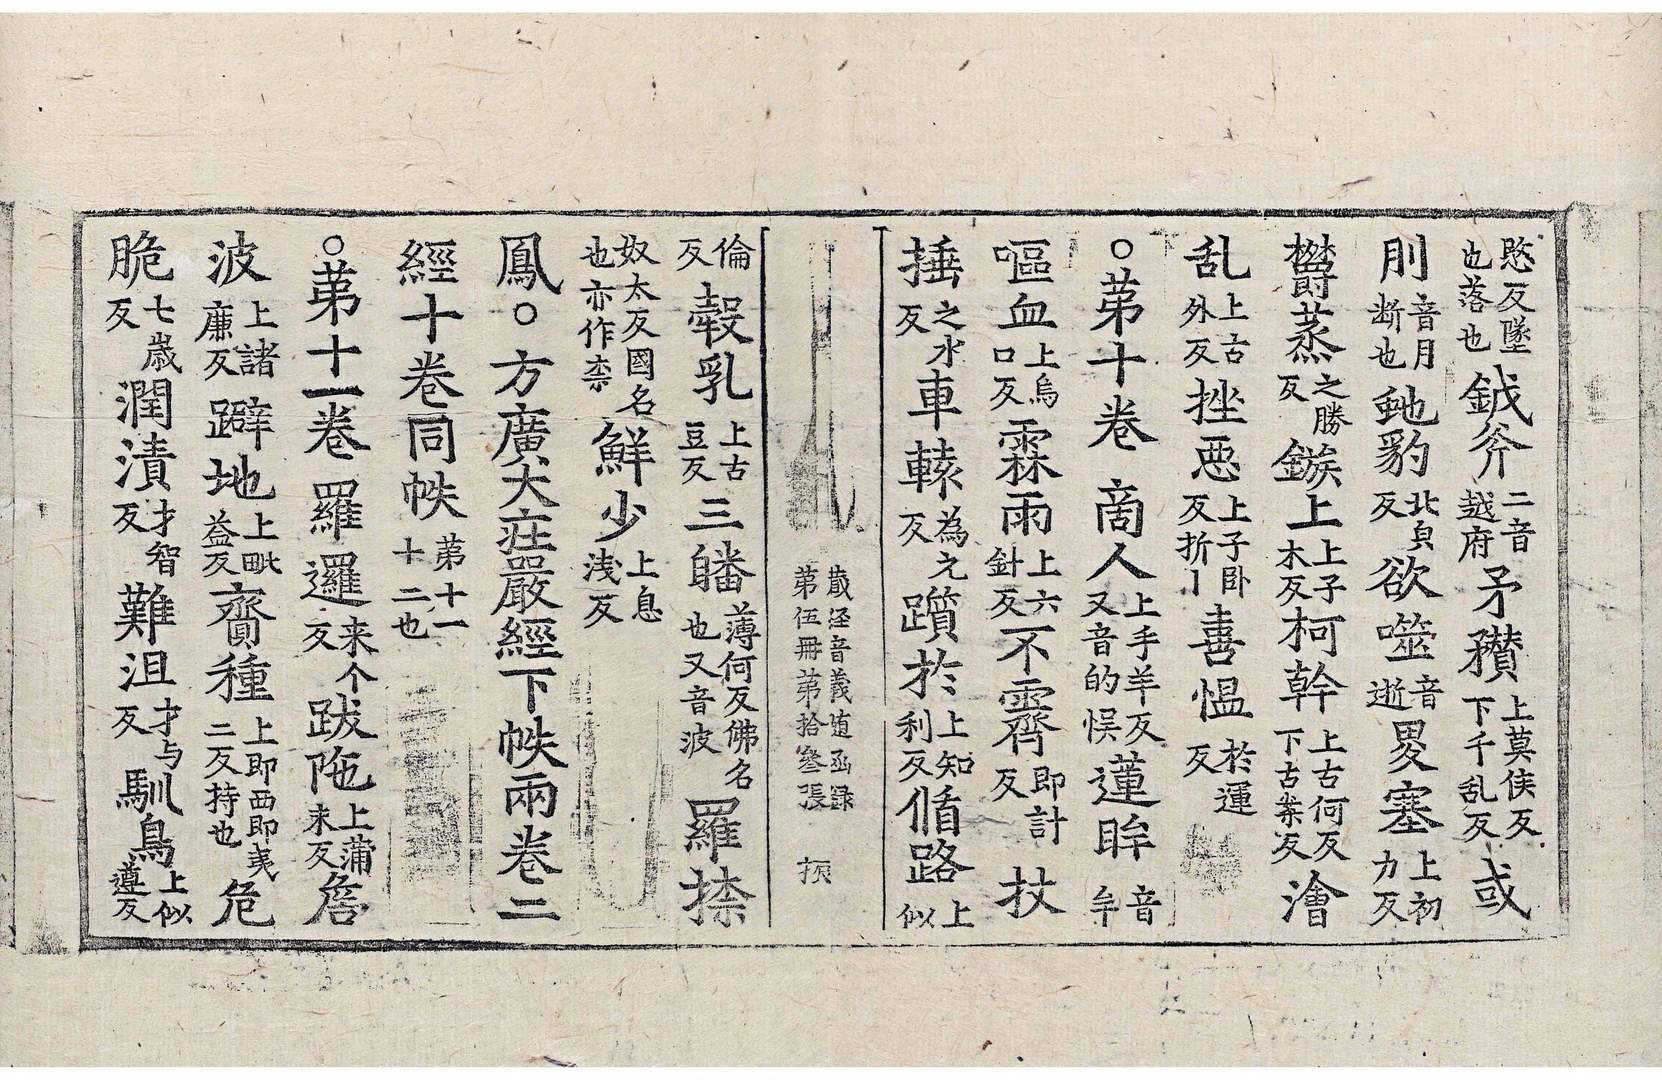 愍反墜也落也鉞斧二音越府矛穳上莫侯反下千乱反或
刖音月断也虵豹北皃反欲噬音逝畟塞上初力反
欝蒸之勝反鏃上上子木反柯幹上古何反下古案反澮
乱上古外反挫恧上子卧反折丨憙愠於運反
○苐十卷 商人上手羊反又音的悮蓮眸音牟
嘔血上烏口反霖雨上六針反不霽即計反扙
捶之水反車轅為元反躓於上知利反循路上似
藏経音義随函録苐伍冊苐拾叄張 振
倫反㝅乳上古豆反三皤薄何反佛名也又音波羅㮈
奴太反國名也亦作柰鮮少上息浅反
鳳○方廣大荘嚴經下帙兩卷二
經十卷同帙苐十一十二也
○苐十一卷 羅邏来个反跋陁上蒲末反詹
波上諸廉反躃地上毗益反齎種上即西即夷二反持也危
脆七歳反潤漬才智反難沮才与反馴鳥上似遵反